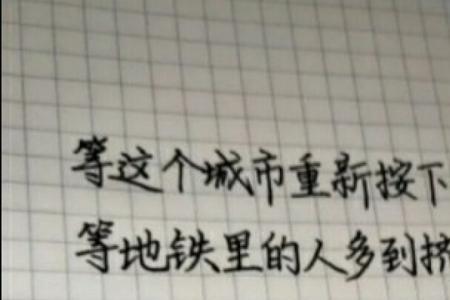 等这个城市重新按下
等地铁里的人多到挤